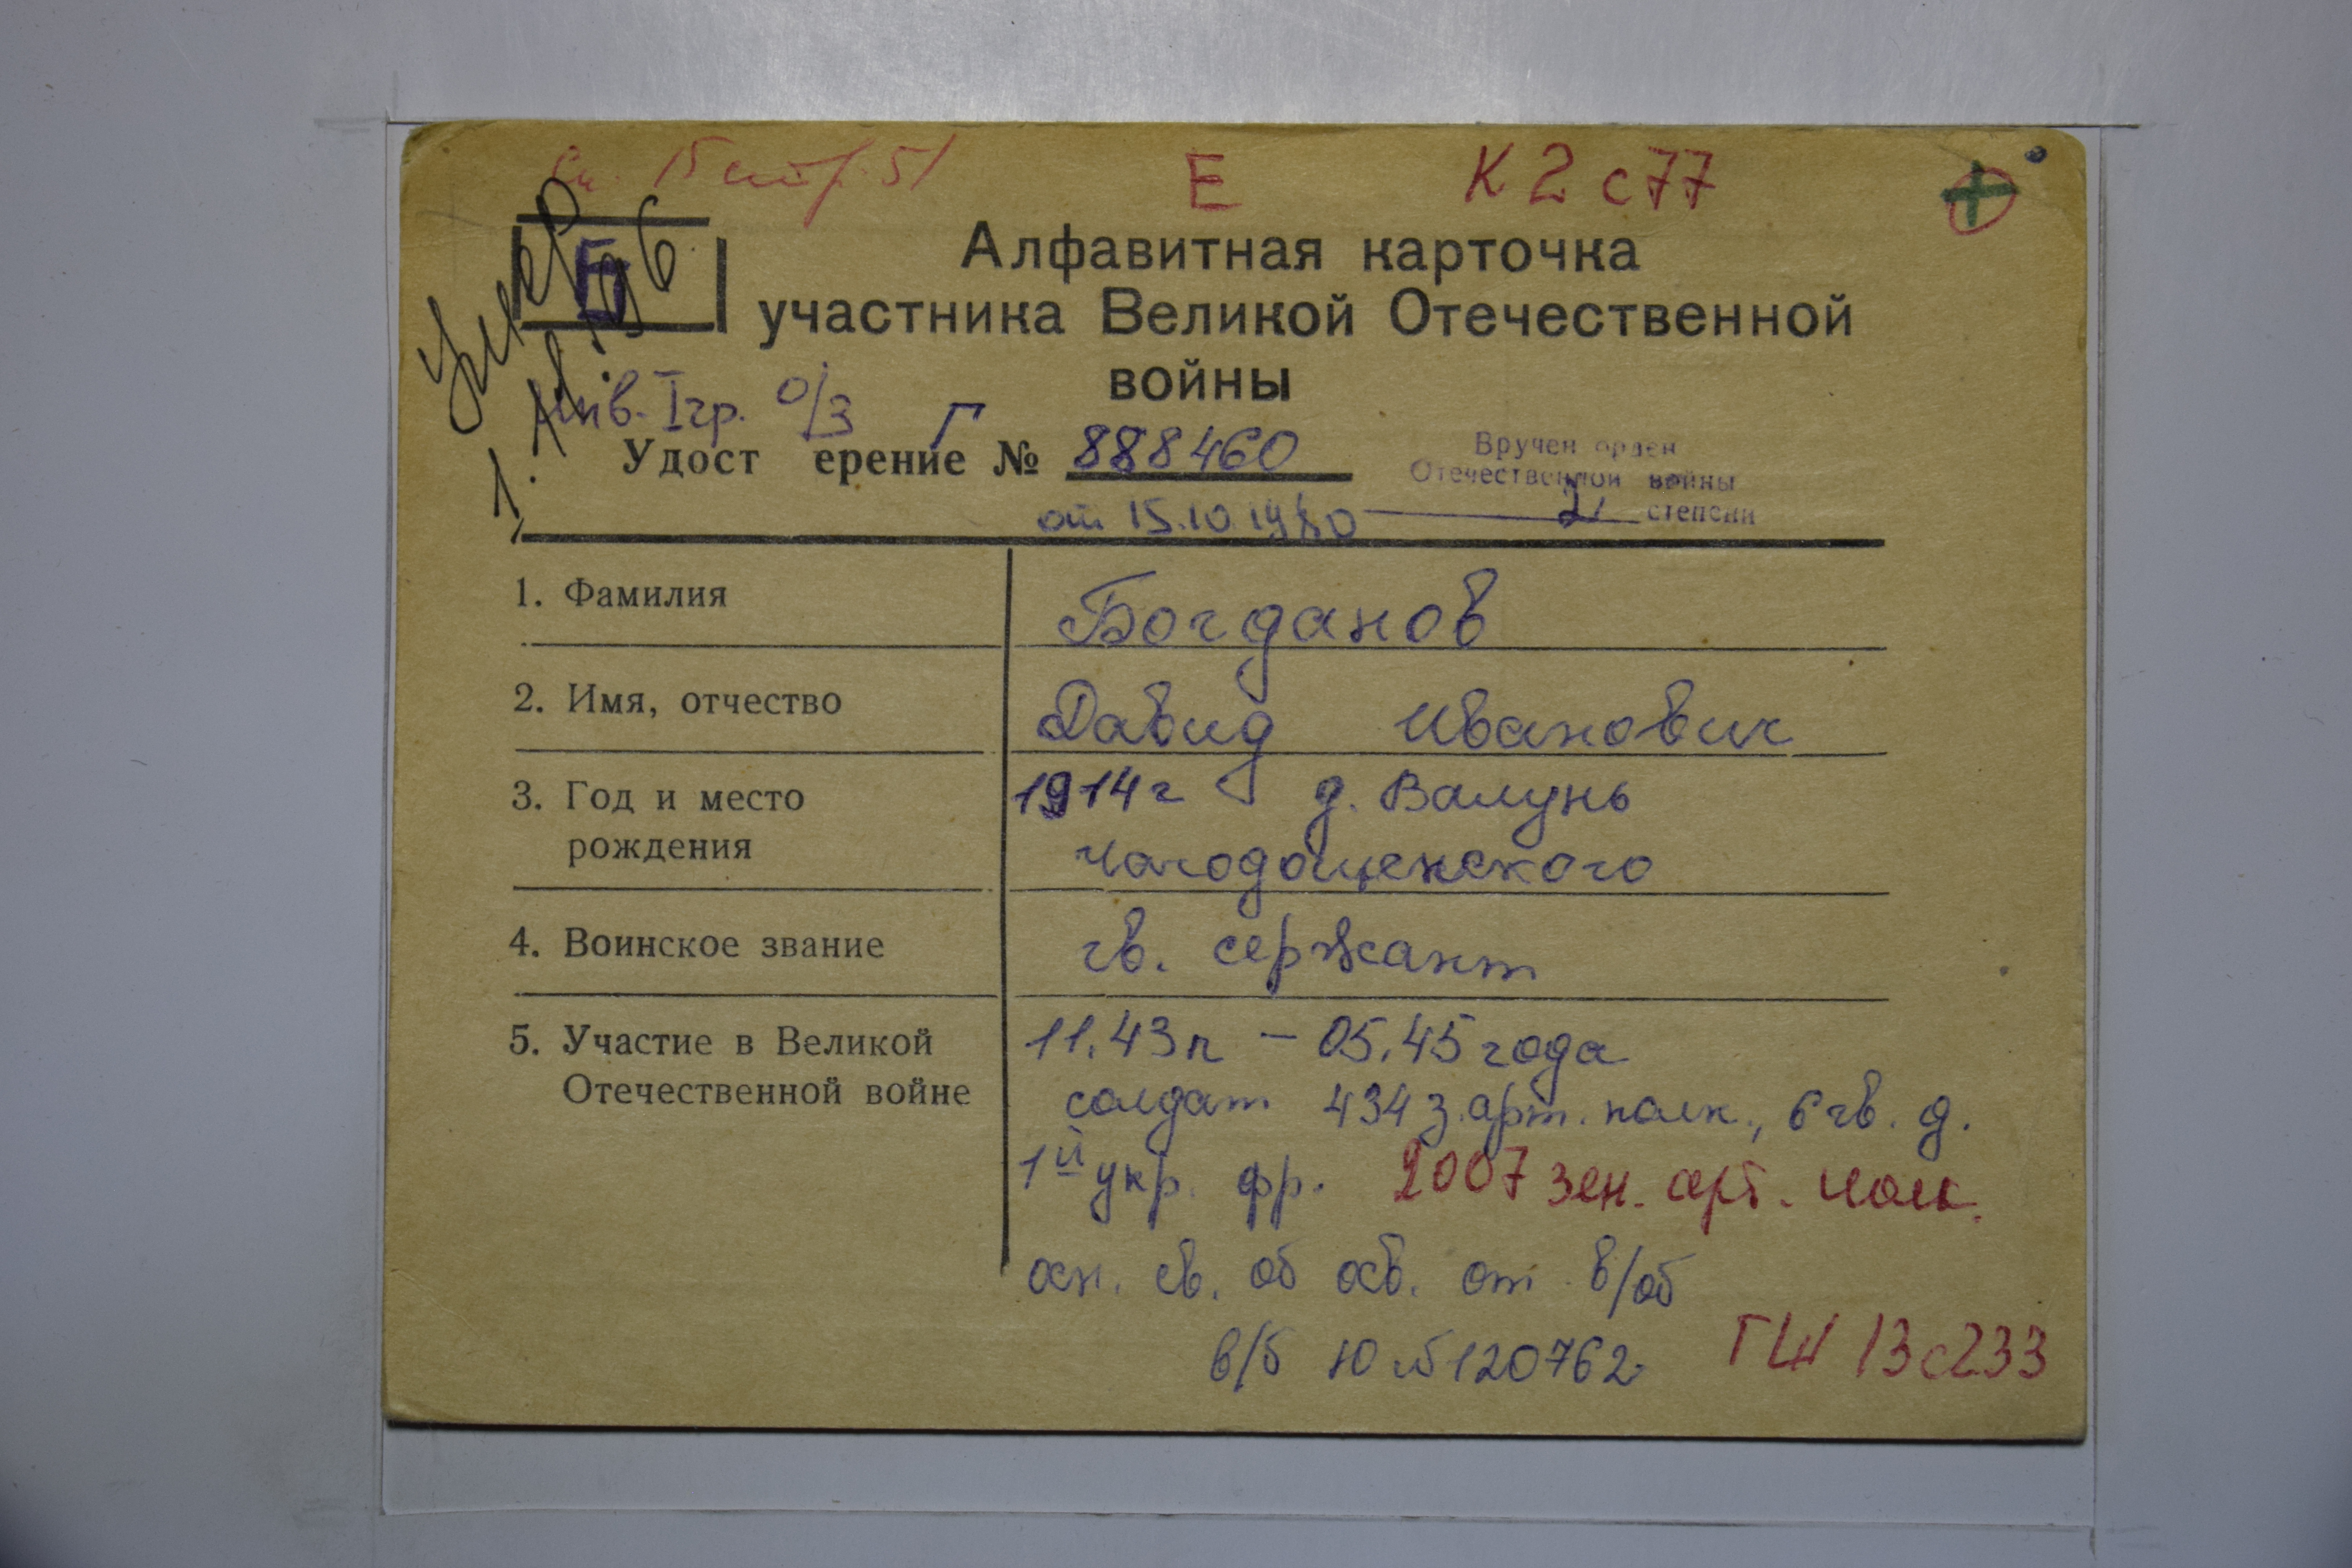 15 стр. 51 Е К 2 с 77
умер Б
Алфавитная карточка
участника Великой Отечественной
войны
инв. I гр. о/з Г
Удост ерение № 888460
Вручен орден
Отечественной войны
2 степени
от 15.10.1980
1. Фамилия Богданов
2. Имя, отчество Давид Иванович
3. Год и место 1914 г д. Валунь
рождения Чагодощенского
4. Воинское звание гв. сержант
5. Участие в Великой 11.43 г – 05.45 года
Отечественной войне солдат 434 з. арт. полк., 6 гв. д.
1й укр. фр. 2007 зен. арт. полк.
осн. св. об осв. от в/об
в/б Ю № 120762 ГШ 13 с 233